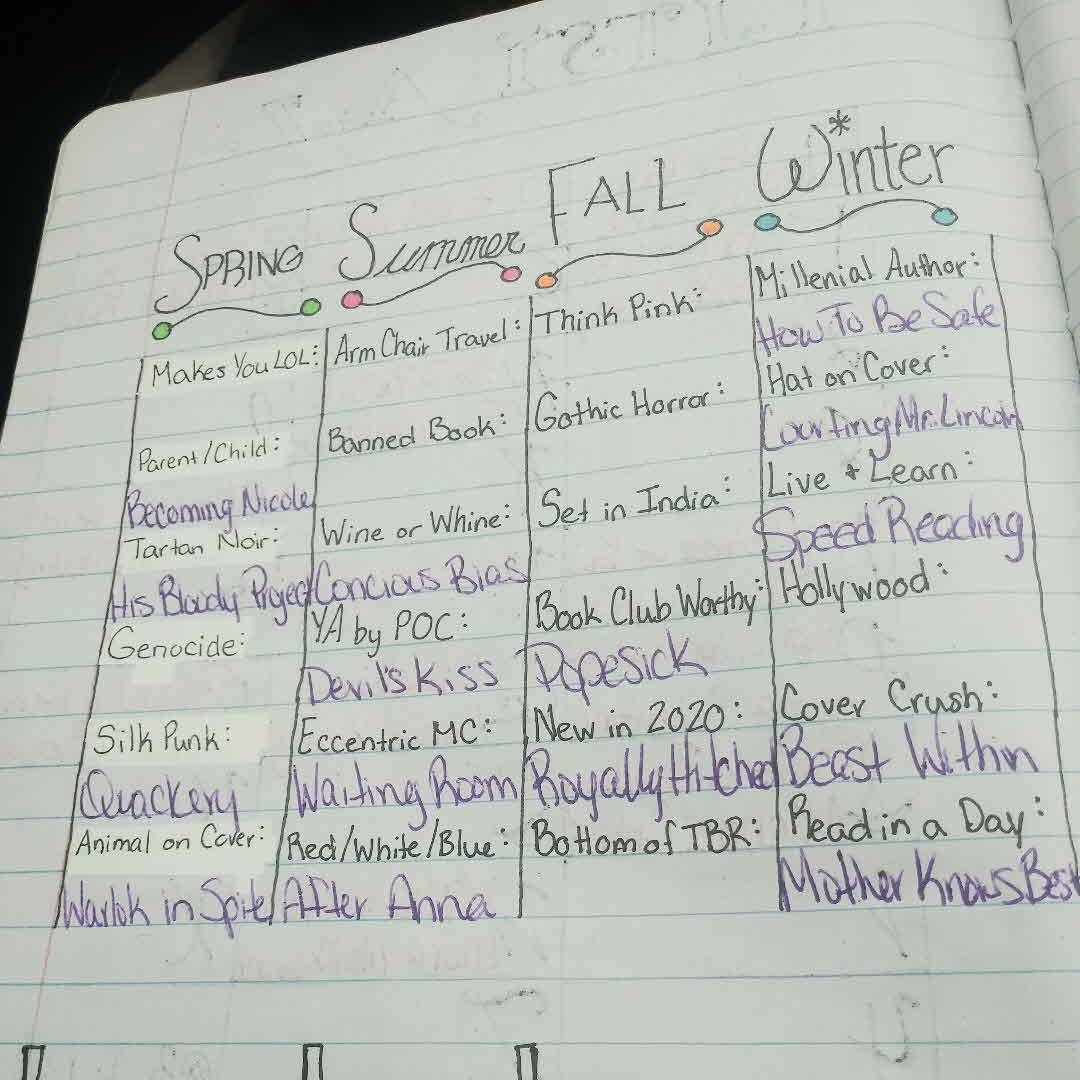 Spring
Makes You LOL:
Parent/Child:
Becoming Nicole
Tartan Noir:
His Bloody Project
Genocide:
Silk Punk:
Quackery
Animal on Cover:
Warlok in Spite
Summer
Arm Chair Travel:
Banned Book:
Wine or Whine:
Concious Bias
YA by POC:
Devil's Kiss
Eccentric MC:
Waiting Room
Red/White/Blue:
After Anna
FALL
Think Pink:
Gothic Horror:
Set in India:
Book Club Worthy:
Dopesick
New in 2020:
Royally Hitched
Bottom of TBR:
Winter
Millenial Author:
How To Be Safe
Hat on Cover:
Courting Mr. Lincoln
Live + Learn:
Speed Reading
Hollywood:
Cover Crush:
Beast Within
Read in a Day:
Mother Knows Best